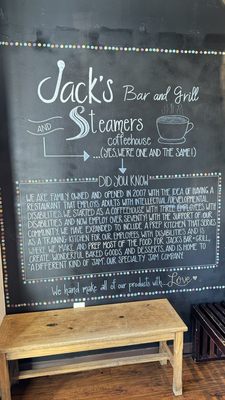 Jack's Bar and Grill
AND
Steamers
coffeehouse
...(YES, WE'RE ONE AND THE SAME!)
DID YOU KNOW
WE ARE FAMILY OWNED AND OPENED IN 2007 WITH THE IDEA OF HAVING A
RESTAURANT THAT EMPLOYS ADULTS WITH INTELLECTUAL/DEVELOPMENTAL
DISABILITIES. WE STARTED AS A COFFEEHOUSE WITH THREE EMPLOYEES WITH
DISABILITIES AND NOW EMPLOY OVER SEVENTY! WITH THE SUPPORT OF OUR
COMMUNITY WE HAVE EXPANDED TO INCLUDE A PREP KITCHEN THAT SERVES
AS A TRAINING KITCHEN FOR OUR EMPLOYEES WITH DISABILITIES AND IS
WHERE WE MAKE AND PREP MOST OF THE FOOD FOR JACK'S BAR + GRILL,
CREATE WONDERFUL BAKED GOODS AND DESSERTS, AND IS HOME TO
"A DIFFERENT KIND OF JAM", OUR SPECIALTY JAM COMPANY.
We hand make all of our products with... Love